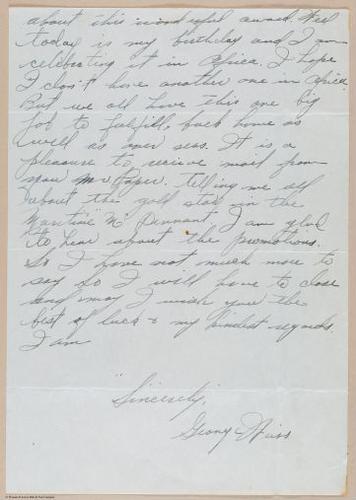 about this wonderful award. Well
today is my birthday and I am
celebrating it in Africa. I hope
I don't have another one in Africa
But we all have this one big
job to fulfill, back home as
well as over seas. It is a
pleasure to recieve mail from
you Mr Paper. Telling me all
about the gold star in the
Maritime M Pennant, I am glad
to hear about the promotions.
So I have not much more to
say so I will have to close
and may I wish you the
best of luck & my kindest regards.
I am
Sincerely,
George